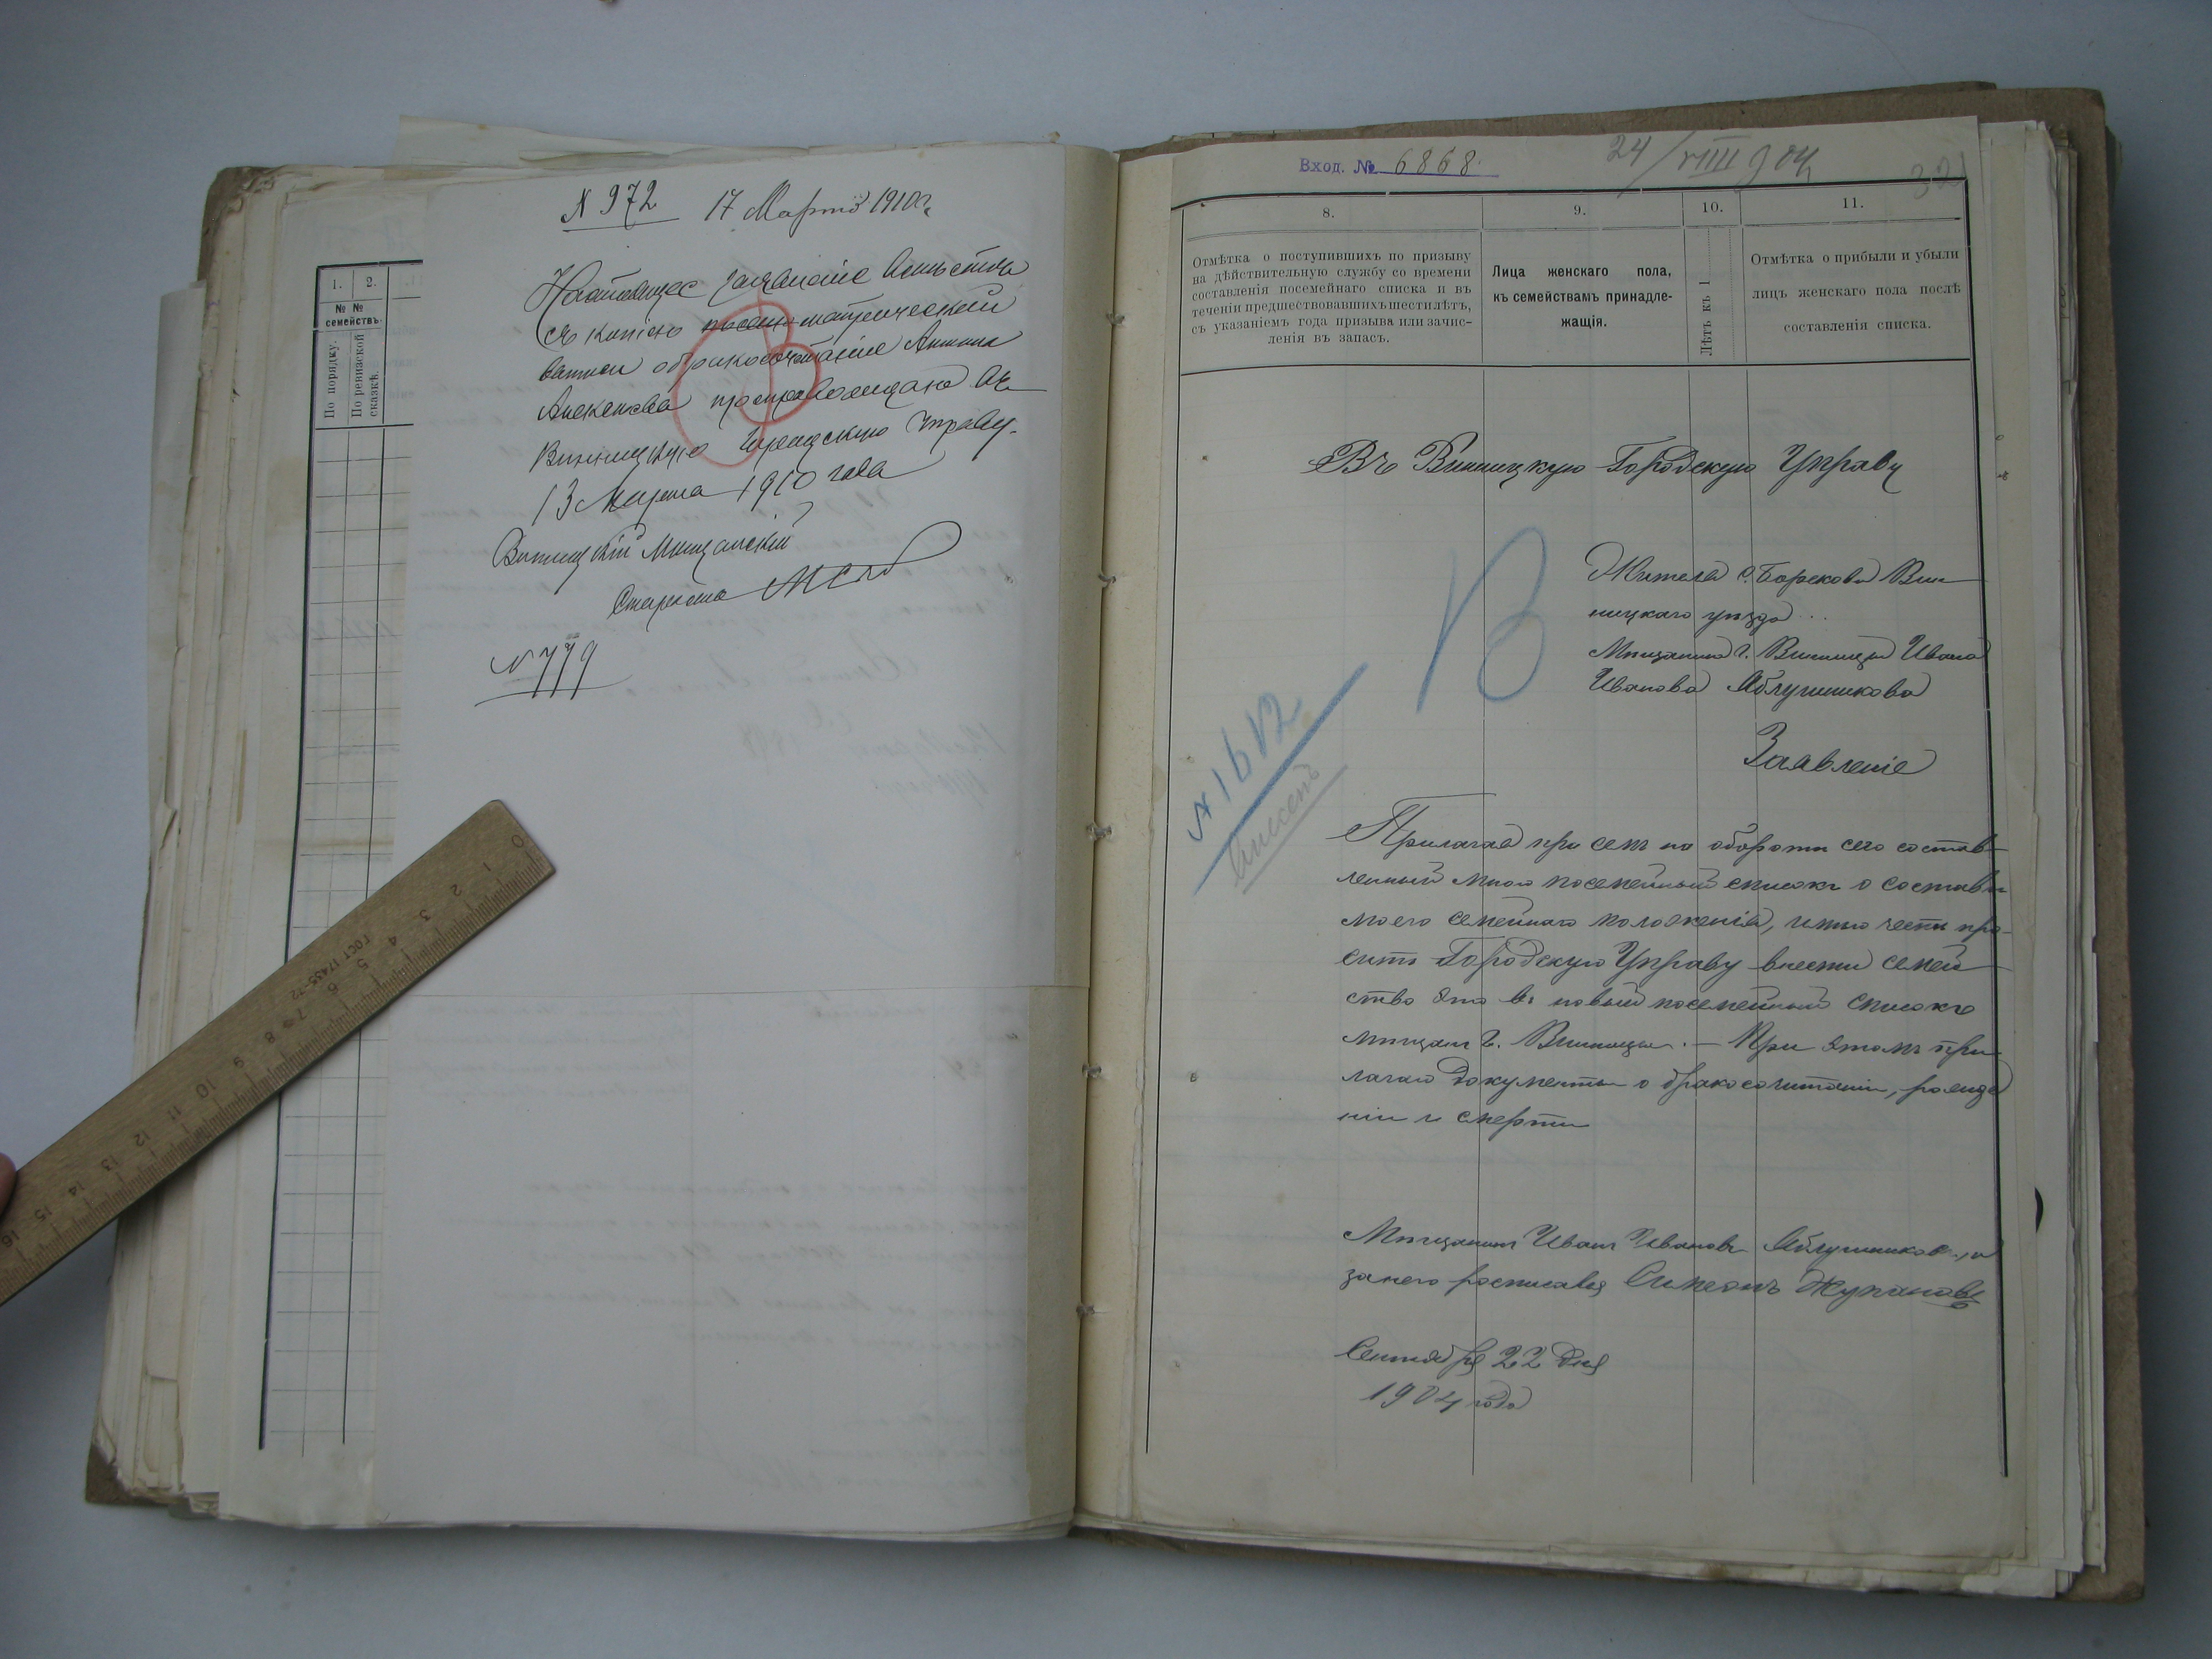 1.
2.
№ №
семействъ.
По порядку.
По ревизской
сказкѣ.
N 972 17 Марта 1910 г.
Настоящее заявленіе вмѣстѣ
съ копіею метрической
выписи о бракосочетаніи Антона
Алексѣева препровождаю въ
Винницкую Городскую Управу.
13 Марта 1910 года
Винницкій Мѣщанскій
Староста
N 779
0 1 2 3 4 5 6 7 8 9 10 11 12 13 14 15 16
ГОСТ 17435-72
Вход. № 6868.
24/VIIII 904
32
8.
9.
10.
11.
Отмѣтка о поступившихъ по призыву
на дѣйствительную службу со времени
составленія посемейнаго списка и въ
теченіи предшествовавшихъ шести лѣтъ,
съ указаніемъ года призыва или зачис-
ленія въ запасъ.
Лица женскаго пола,
къ семействамъ принадле-
жащія.
Лѣтъ къ 1
Отмѣтка о прибыли и убыли
лицъ женскаго пола послѣ
составленія списка.
Въ Винницкую Городскую Управу
В
Жителя с. Борскова Вин
ницкаго уѣзда
Мѣщанина г. Винницы Ивана
Иванова Яблушникова
N 1612
Заявленіе
Прилагая при семъ на оборотѣ сего состав-
ленный мною посемейный списокъ о составѣ
моего семейнаго положенія, имѣю честь про-
сить Городскую Управу внести семей-
ство это въ новый посемейный списокъ
мѣщанъ г. Винницы. — При этомъ при-
лагаю документы о бракосочитаніи, рожде
ніи и смерти
Мѣщанинъ Иванъ Ивановъ Яблушниковъ, а
за него росписався Симеонъ Жупановъ
Сентября 22 дня
1904 года